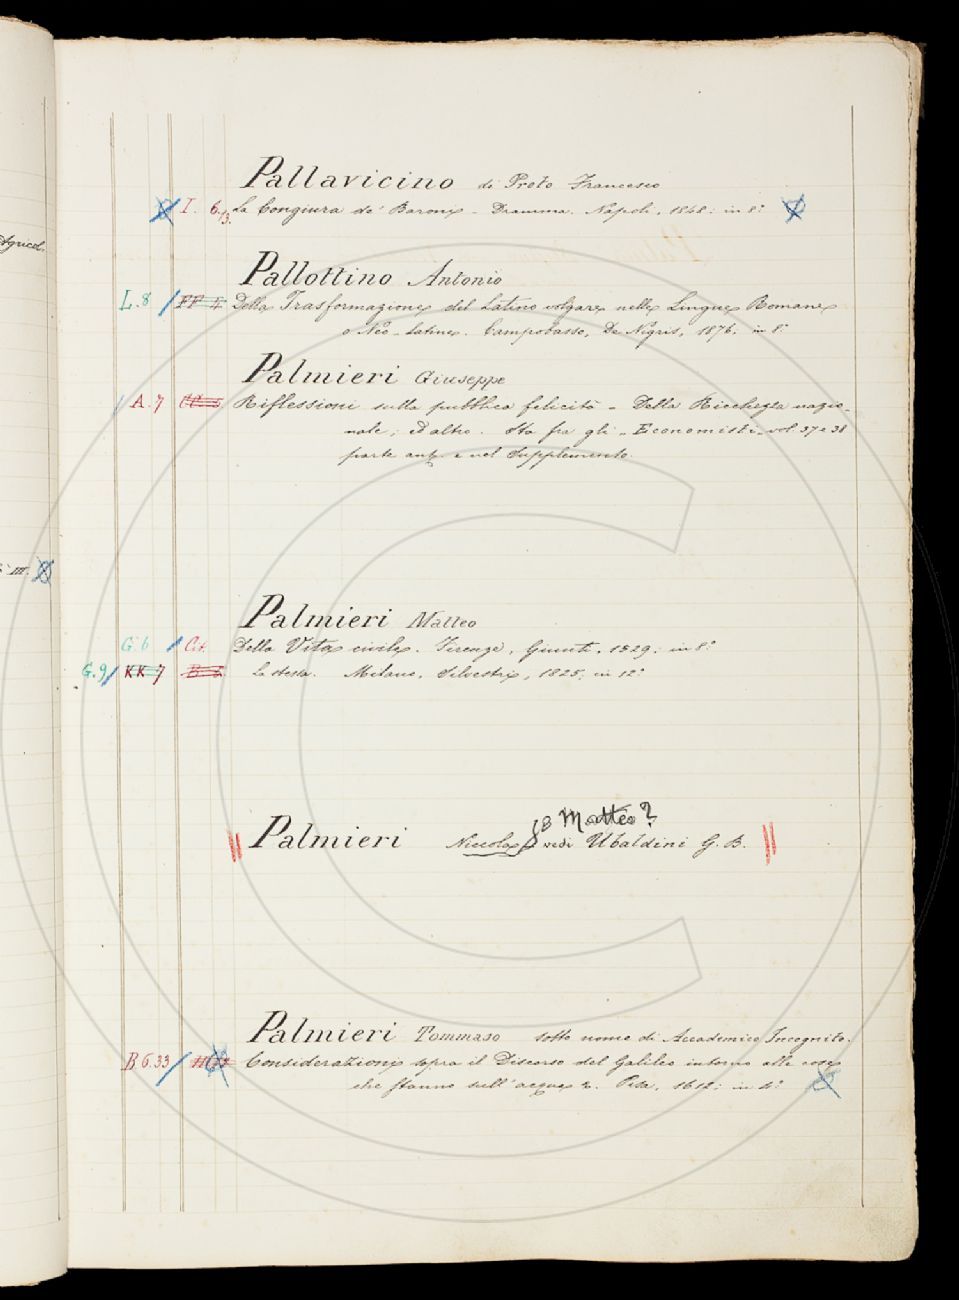 Agricol.
Pallavicino di Proto Francesco
I. 6. /3. La Congiura de' Baroni - Dramma. Napoli, 1848: in 8°
Pallottino Antonio
L. 8 / Della Trasformazione del Latino volgare nelle Lingue Romane
o Neo-Latine. Campobasso, De Nigris, 1876. in 8°
Palmieri Giuseppe
/ A. 7 CC. 5 Riflessioni sulla pubblica felicità - Della Ricchezza nazio-
nale; ed altro. Sta fra gli - Economisti - vol. 37 e 38
parte ant. e nel Supplemento.
III.
Palmieri Matteo
G. 6 / Della Vita civile. Firenze, Giunti, 1529; in 8°
G. 9 / KK 7 La stessa. Milano, Silvestri, 1825, in 12°
è Matteo?
Palmieri Niccola vedi Ubaldini G. B.
Palmieri Tommaso sotto nome di Accademico Incognito.
B 6.33 / Considerazioni sopra il Discorso del Galileo intorno alle cose
che stanno sull'acqua &. Pisa, 1612; in 4°
C